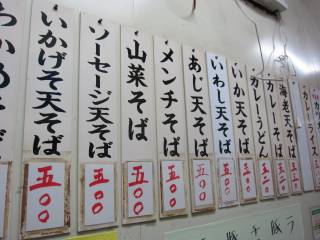 わかめそば
いかげそ天そば
五〇〇
ソーセージ天そば
五〇〇
山菜そば
五〇〇
メンチそば
五〇〇
あじ天そば
五〇〇
いわし天そば
五〇〇
いか天そば
五〇〇
カレーうどん
五〇〇
カレーそば
五〇〇
海老天そば
五〇〇
カレーライス